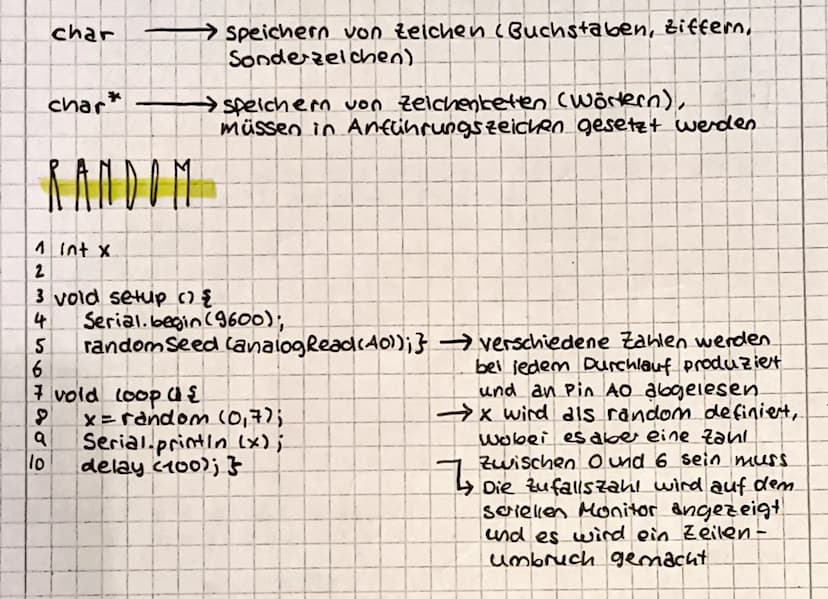 char → speichern von Zeichen (Buchstaben, Ziffern,
Sonderzeichen)
char* → speichern von Zeichenketten (Wörtern),
müssen in Anführungszeichen gesetzt werden
RANDOM
1 int x
2
3 void setup () {
4 Serial.begin(9600);
5 randomSeed (analogRead(A0)); } → verschiedene Zahlen werden
6 bei jedem Durchlauf produziert
7 void loop () { und an Pin A0 abgelesen
8 x = random (0,7); → x wird als random definiert,
9 Serial.println (x); wobei es aber eine Zahl
10 delay (100); } zwischen 0 und 6 sein muss
↳ Die Zufallszahl wird auf dem
seriellen Monitor angezeigt
und es wird ein Zeilen-
umbruch gemacht